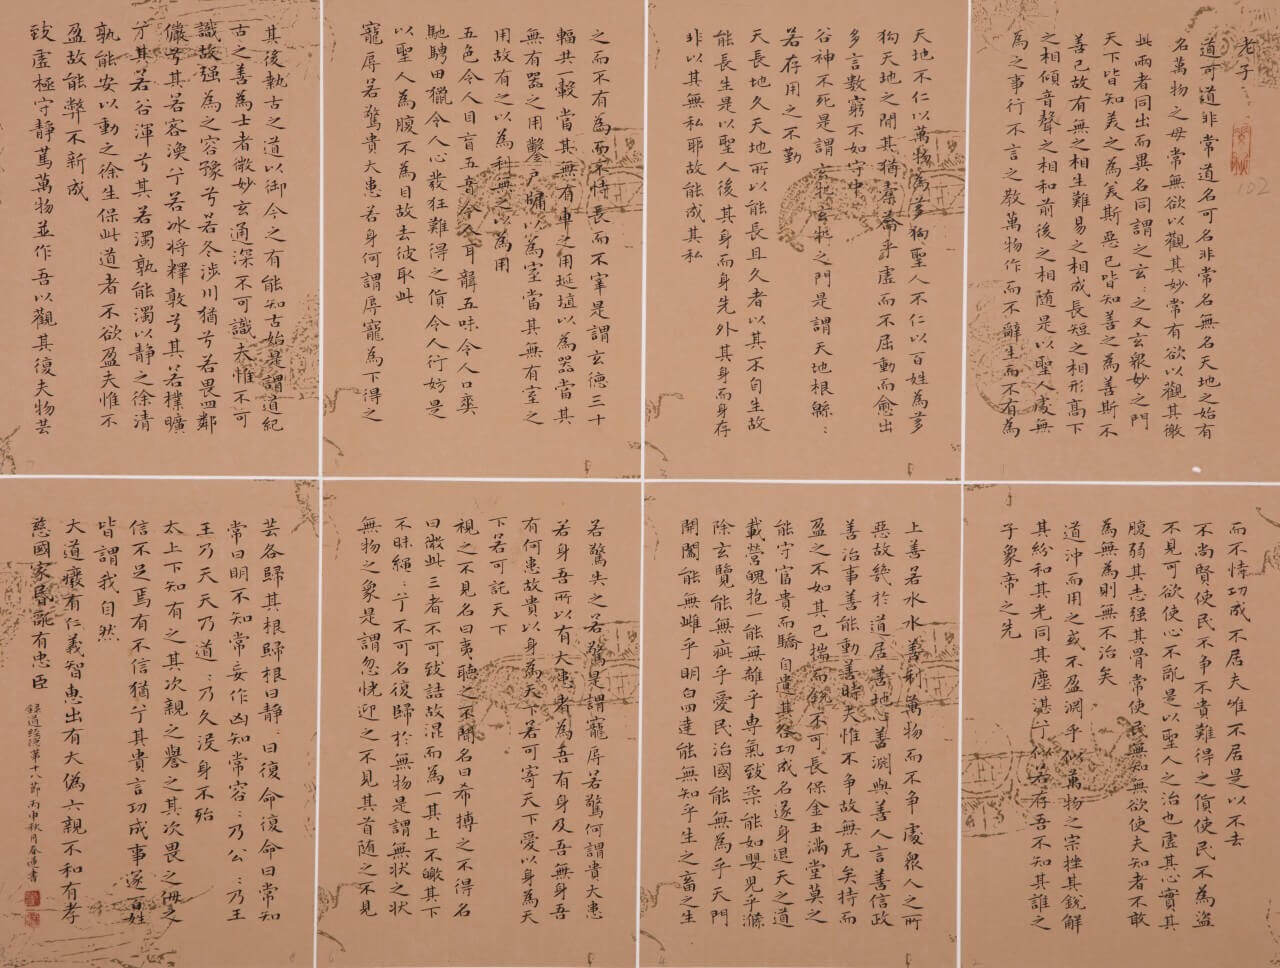 老子
道可道非常道名可名非常名無名天地之始有
名萬物之母常無欲以觀其妙常有欲以觀其徼
此兩者同出而異名同謂之玄:之又玄眾妙之門
天下皆知美之為美斯惡已皆知善之為善斯不
善已故有無之相生難易之相成長短之相形高下
之相傾音聲之相和前後之相隨是以聖人處無
為之事行不言之教萬物作而不辭生而不有為
而不恃功成不居夫唯不居是以不去
不尚賢使民不爭不貴難得之貨使民不為盜
不見可欲使心不亂是以聖人之治也虛其心實其
腹弱其志强其骨常使民無知無欲使夫知者不敢
為無為則無不治矣
道沖而用之或不盈淵乎似萬物之宗挫其銳解
其紛和其光同其塵湛兮似若存吾不知其誰之
子象帝之先
天地不仁以萬物為芻狗聖人不仁以百姓為芻
狗天地之間其猶橐籥乎虛而不屈動而愈出
多言數窮不如守中
谷神不死是謂玄牝玄牝之門是謂天地根緜:
若存用之不勤
天長地久天地所以能長且久者以其不自生故
能長生是以聖人後其身而身先外其身而身存
非以其無私耶故能成其私
上善若水水善利萬物而不爭處眾人之所
惡故幾於道居善地心善淵與善人言善信政
善治事善能動善時夫惟不爭故無尤矣持而
盈之不如其已揣而銳不可長保金玉滿堂莫之
能守富貴而驕自遺其咎功成名遂身退天之道
載營魄抱一能無離乎專氣致柔能如嬰兒乎滌
除玄覽能無疵乎愛民治國能無為乎天門
開闔能無雌乎明白四達能無知乎生之畜之生
之而不有為而不恃長而不宰是謂玄德三十
輻共一轂當其無有車之用埏埴以為器當其
無有器之用鑿戶牖以為室當其無有室之
用故有之以為利無之以為用
五色令人目盲五音令人耳聾五味令人口爽
馳騁田獵令人心發狂難得之貨令人行妨是
以聖人為腹不為目故去彼取此
寵辱若驚貴大患若身何謂辱寵為下得之
若驚失之若驚是謂寵辱若驚何謂貴大患
若身吾所以有大患者為吾有身及吾無身吾
有何患故貴以身為天下若可寄天下愛以身為天
下若可託天下
視之不見名曰夷聽之不聞名曰希搏之不得名
曰微此三者不可致詰故混而為一其上不皦其下
不昧繩:兮不可名復歸於無物是謂無狀之狀
無物之象是謂忽恍迎之不見其首隨之不見
其後執古之道以御今之有能知古始是謂道紀
古之善為士者微妙玄通深不可識夫惟不可
識故强為之容豫兮若冬涉川猶兮若畏四鄰
儼兮其若容渙兮若冰將釋敦兮其若樸曠
兮其若谷渾兮其若濁孰能濁以靜之徐清
孰能安以動之徐生保此道者不欲盈夫惟不
盈故能弊不新成
致虛極守靜篤萬物並作吾以觀其復夫物芸
芸各歸其根歸根曰靜:曰復命復命曰常知
常曰明不知常妄作凶知常容:乃公:乃王
王乃天天乃道:乃久沒身不殆
太上下知有之其次親之譽之其次畏之侮之
信不足焉有不信猶兮其貴言功成事遂百姓
皆謂我自然
大道廢有仁義智惠出有大偽六親不和有孝
慈國家昏亂有忠臣
錄道經第十八節丙申秋月春蓮書